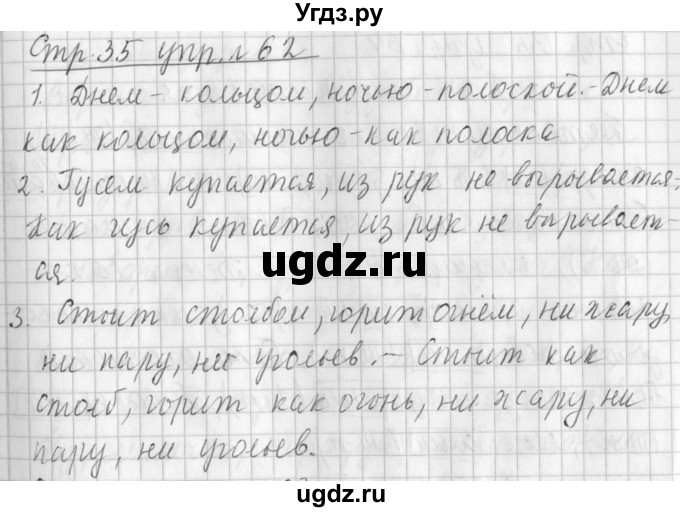 Угдз.ру
Стр. 35 упр. № 62
1. Днем - кольцом, ночью - полоской. - Днем
как кольцом, ночью - как полоска
2. Гусем купается, из рук не вырывается.
Как гусь купается, из рук не вырывает-
ся.
ugdz.ru
3. Стоит столбом, горит огнём, ни жару,
ни пару, ни угольев. - Стоит как
столб, горит как огонь, ни жару, ни
пару, ни угольев.
ugdz.ru